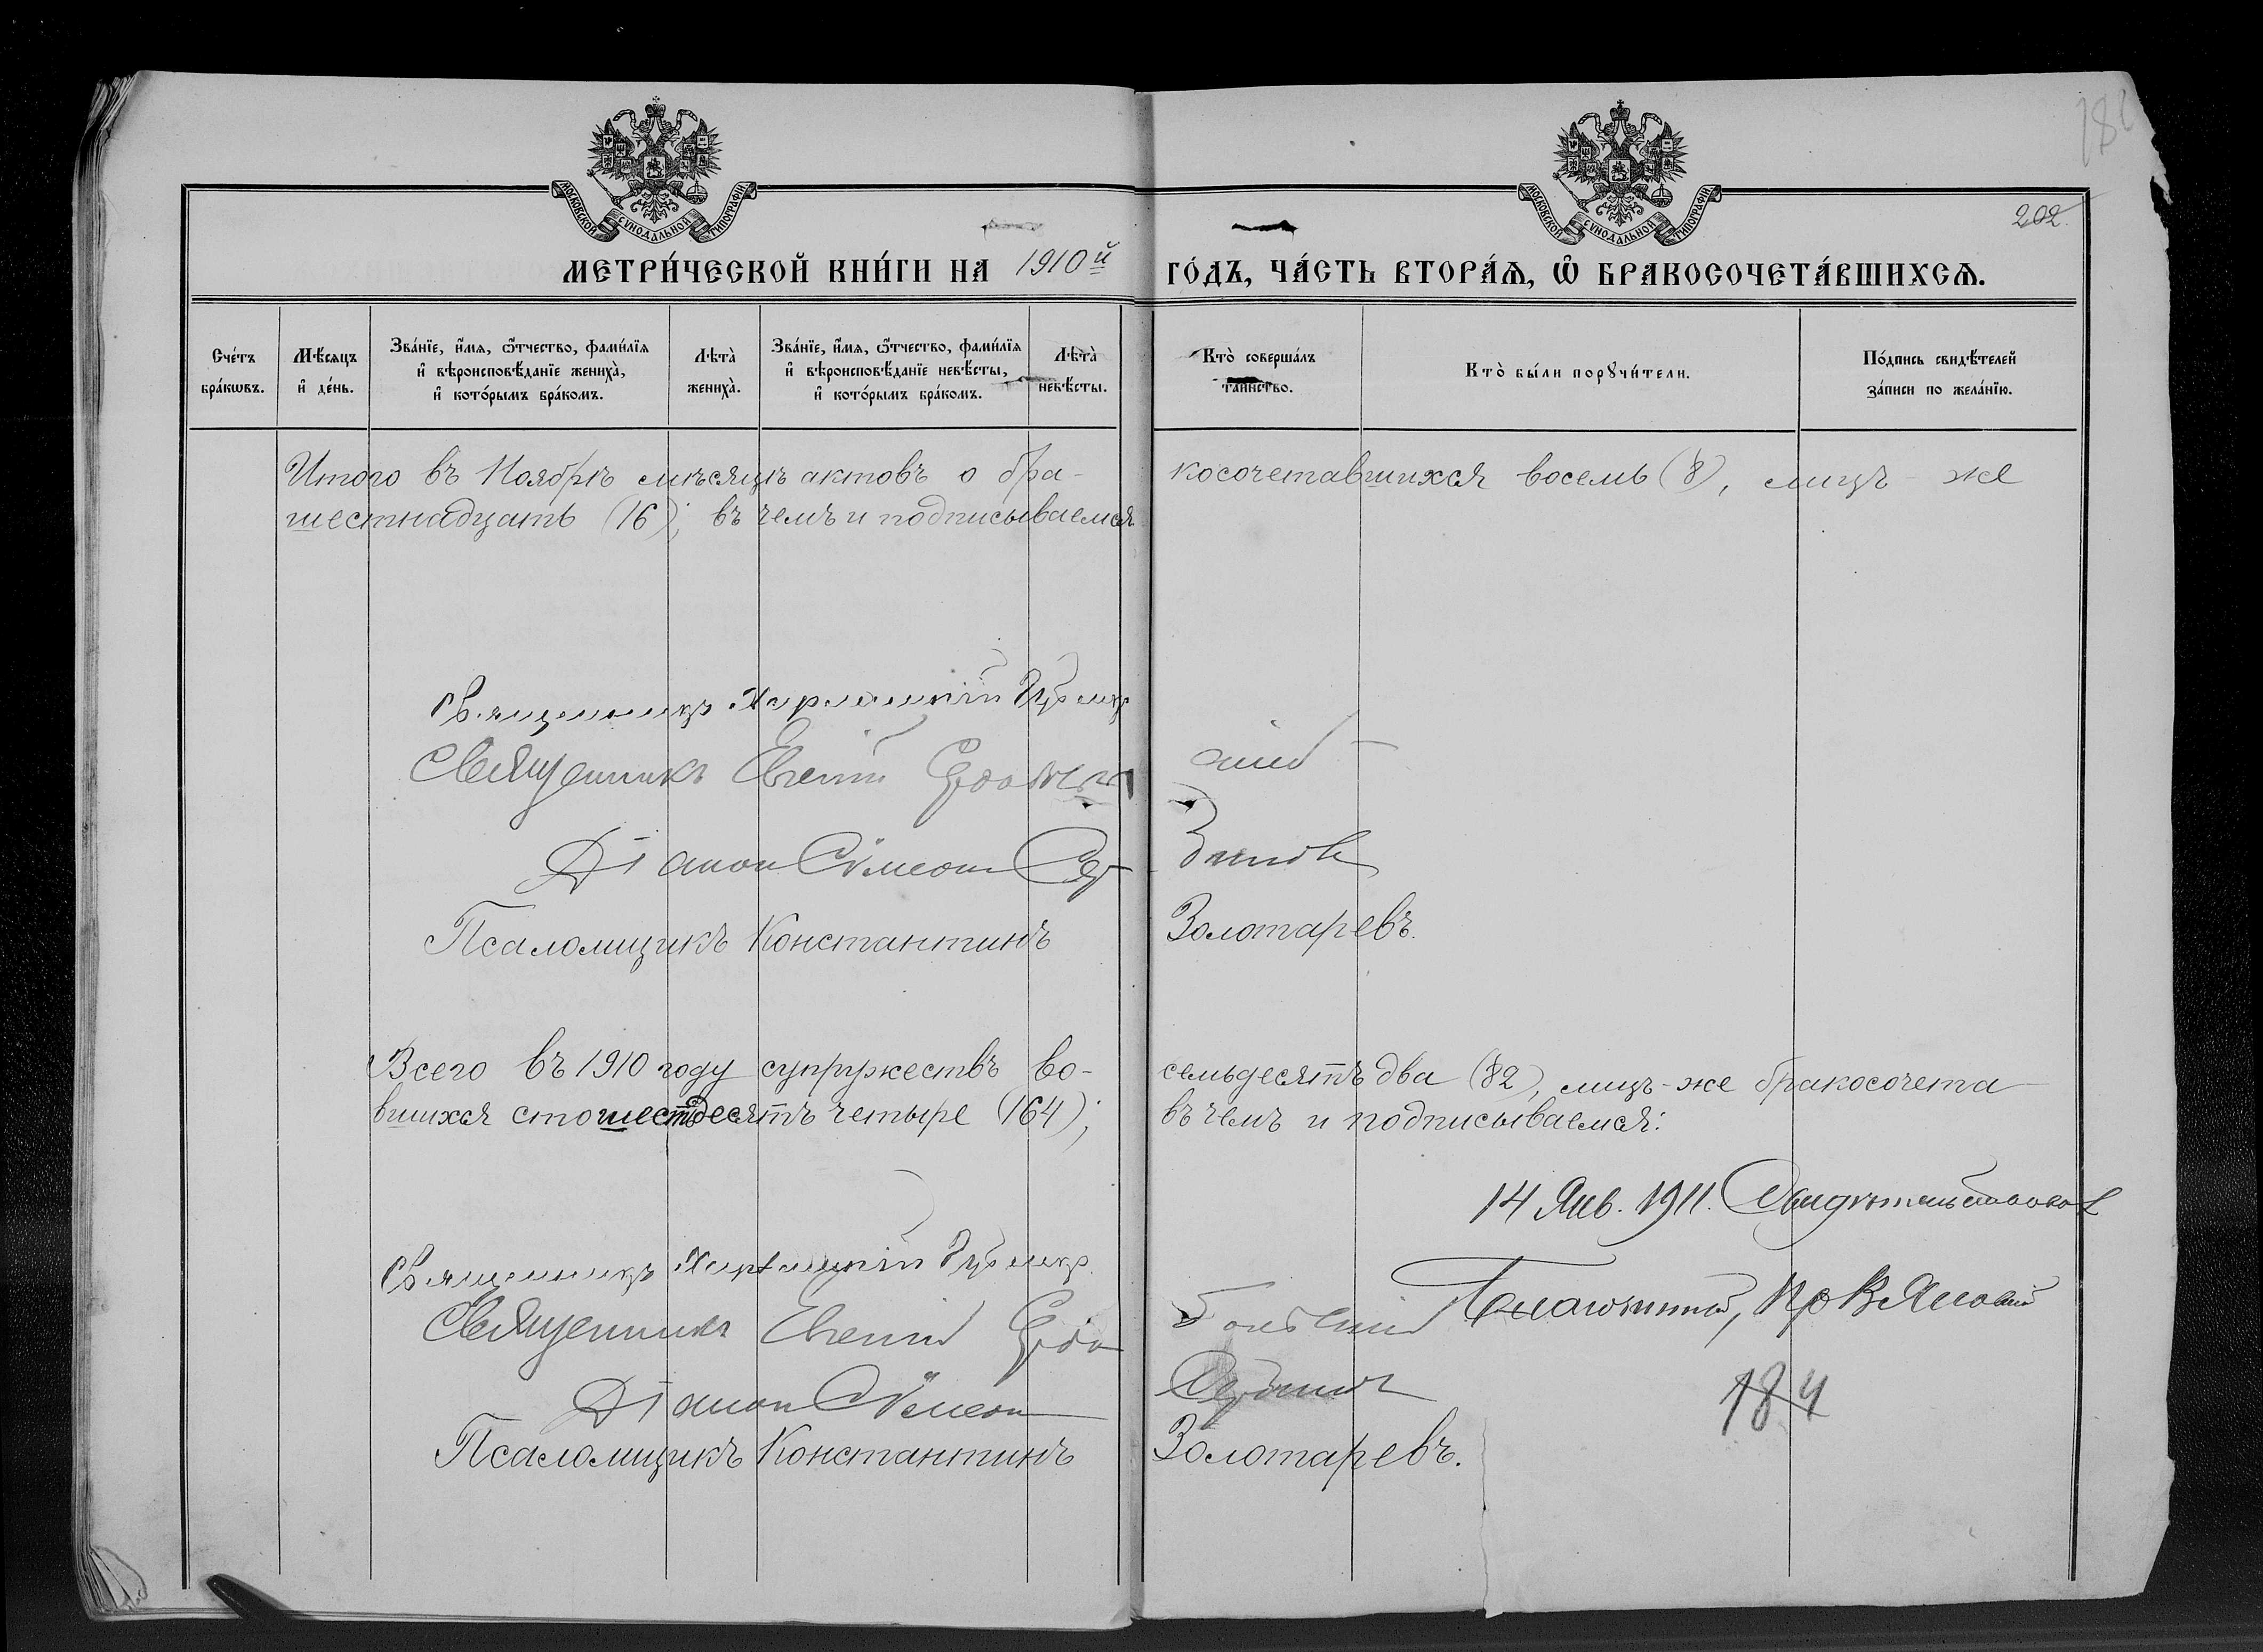 МОСКОВСКОЙ СѴНОДАЛЬНОЙ ТИПОГРАФІИ
МОСКОВСКОЙ СѴНОДАЛЬНОЙ ТИПОГРАФІИ
202
МЕТРИ́ЧЕСКОЙ КНИ́ГИ НА 1910й ГО́ДЪ, ЧА́СТЬ ВТОРА́Ѧ, Ѡ҆ БРАКОСОЧЕТА́ВШИХСѦ.
Сче́тъ бра́кѡвъ.
Мѣ́сяцъ и҆ де́нь.
Зва́нїе, и҆́мя, ѻ҆́тчество, фами́лїя и҆ вѣроисповѣ́данїе жениха̀, и҆ кото́рымъ бра́комъ.
Лѣта̀ жениха̀.
Зва́нїе, и҆́мя, ѻ҆́тчество, фами́лїя и҆ вѣроисповѣ́данїе невѣ́сты, и҆ кото́рымъ бра́комъ.
Лѣта̀ невѣ́сты.
Кто̀ соверша́лъ таинство.
Кто̀ бы́ли порꙋчи́тели.
По́дпись свидѣ́телей за́писи по жела́нїю.
Итого въ Ноябрѣ мѣсяцѣ актовъ о бра- косочетавшихся восемь (8), лицъ - же
шестнадцать (16); въ чемъ и подписываемся
Священникъ
Священникъ Евгеній
Діакон Сѵмеон
Псаломщикъ Константинъ Золотаревъ.
Всего въ 1910 году супружествъ во- семьдесятъ два (82), лицъ-же бракосочета
вшихся сто шестьдесятъ четыре (164); въ чемъ и подписываемся:
14 Янв. 1911. Свидѣтельствовал
Священникъ
Благочинный,
Священникъ Евгеній
Діакон Сѵмеон
184
Псаломщикъ Константинъ Золотаревъ.